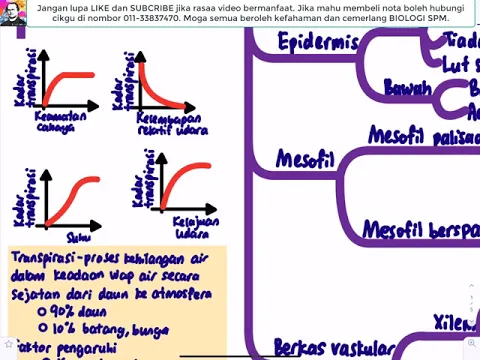 Jangan lupa LIKE dan SUBSCRIBE jika rasaa video bermanfaat. Jika mahu membeli nota boleh hubungi
cikgu di nombor 011-33837470. Moga semua beroleh kefahaman dan cemerlang BIOLOGI SPM.
Kadar
transpirasi
Keamatan
cahaya
Kadar
transpirasi
Kelembapan
relatif udara
Kadar
transpirasi
Suhu
Kadar
transpirasi
Kelajuan
udara
Transpirasi-proses kehilangan air
dalam keadaan wap air secara
Sejatan dari daun ke atmosfera
90% daun
10% batang, bunga
faktor pengaruhi
Epidermis
Tiad
Luf s
Bawah
B
Mesofil
Mesofil palisa
Mesofil berspa
Xilem
Berkas vaskular